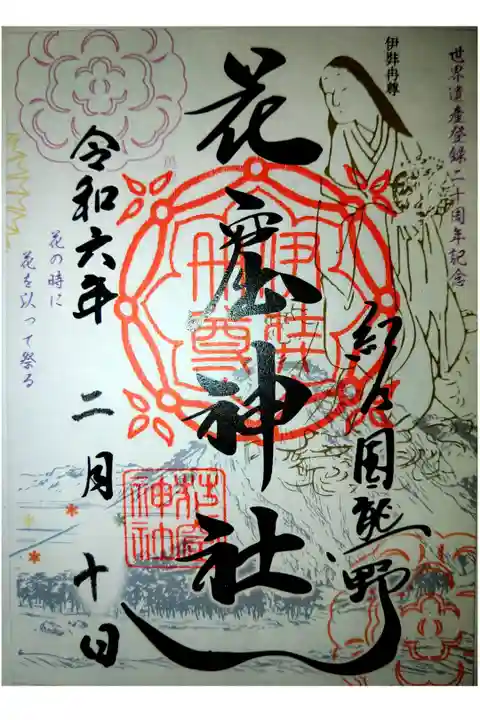 世界遺産登録二十周年記念
伊弉冉尊
紀ノ国熊野
花窟神社
伊弉冉尊
令和六年 二月 十日
花の時に
花を以って祭る